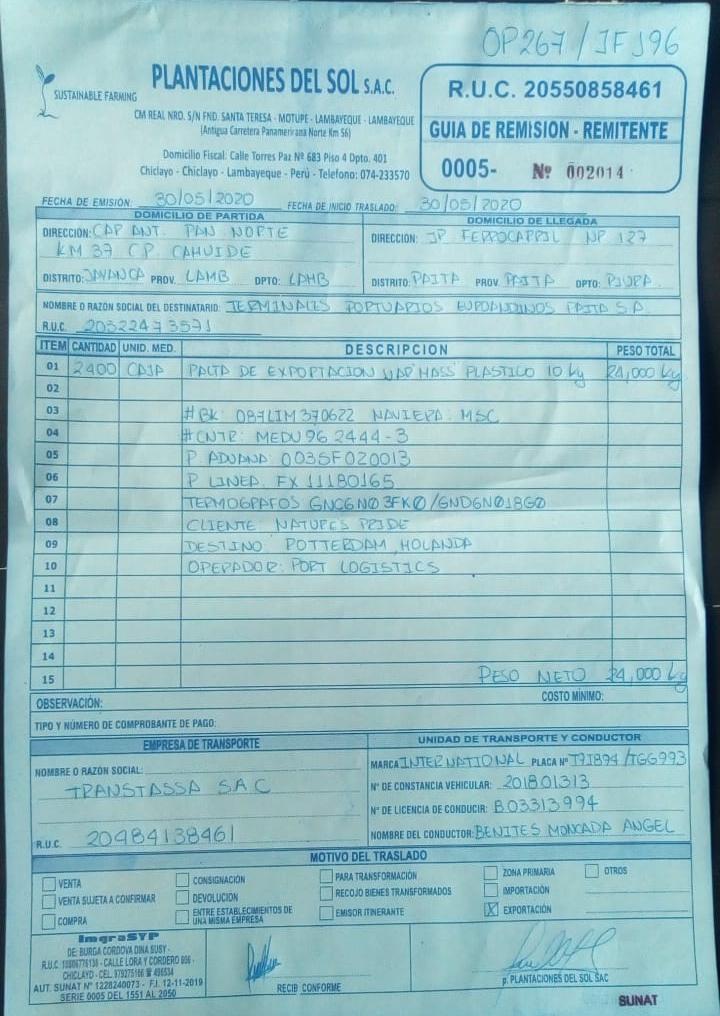 OP267 / JF J96
SUSTAINABLE FARMING
PLANTACIONES DEL SOL S.A.C.
CM REAL NRO. S/N FND. SANTA TERESA - MOTUPE - LAMBAYEQUE - LAMBAYEQUE
(Antigua Carretera Panamericana Norte Km 56)
Domicilio Fiscal: Calle Torres Paz Nº 683 Piso 4 Dpto. 401
Chiclayo - Chiclayo - Lambayeque - Perú - Telefono: 074-233570
R.U.C. 20550858461
GUIA DE REMISION - REMITENTE
0005- Nº 002014
FECHA DE EMISIÓN: 30/05/2020 FECHA DE INICIO TRASLADO: 30/05/2020
DOMICILIO DE PARTIDA
DIRECCIÓN: CAR ANT. PAN NORTE
KM 37 C.P. CAHUIDE
DISTRITO: JAYANCA PROV. LAMB DPTO: LAMB
DOMICILIO DE LLEGADA
DIRECCIÓN: JR FERROCARRIL NR 127
DISTRITO: PAITA PROV. PAITA DPTO: PIURA
NOMBRE O RAZÓN SOCIAL DEL DESTINATARIO: TERMINALES PORTUARIOS EUROANDINOS PAITA S.A.
R.U.C. 20522473571
ITEM CANTIDAD UNID. MED. DESCRIPCION PESO TOTAL
01 2400 CAJA PALTA DE EXPORTACION VAR HASS PLASTICO 10 kg 24,000 kg
02
03 #BK: 087LIM370622 NAVIERA: MSC
04 #CNTR: MEDU 96 2444-3
05 P. ADUANA 0035F020013
06 P LINEA. FX 11180165
07 TERMOGRAFOS GNC6N03FK0/GND6N018G0
08 CLIENTE NATURES PRIDE
09 DESTINO: ROTTERDAM, HOLANDA
10 OPERADOR: PORT LOGISTICS
11
12
13
14
15 PESO NETO 24,000 kg
OBSERVACIÓN: COSTO MÍNIMO:
TIPO Y NÚMERO DE COMPROBANTE DE PAGO:
EMPRESA DE TRANSPORTE
NOMBRE O RAZÓN SOCIAL:
TRANSTASSA S.A.C
R.U.C. 20484138461
UNIDAD DE TRANSPORTE Y CONDUCTOR
MARCA INTERNATIONAL PLACA Nº T7I894 /TGG993
Nº DE CONSTANCIA VEHICULAR: 201801313
Nº DE LICENCIA DE CONDUCIR: B03313994
NOMBRE DEL CONDUCTOR: BENITES MONCADA ANGEL
MOTIVO DEL TRASLADO
VENTA
VENTA SUJETA A CONFIRMAR
COMPRA
CONSIGNACIÓN
DEVOLUCION
ENTRE ESTABLECIMIENTOS DE
UNA MISMA EMPRESA
PARA TRANSFORMACIÓN
RECOJO BIENES TRANSFORMADOS
EMISOR ITINERANTE
ZONA PRIMARIA
IMPORTACIÓN
X EXPORTACIÓN
OTROS
ImgraSYP
DE: BURGA CORDOVA DINA SUSY -
CALLE LORA Y CORDERO
CHICLAYO - CEL. 979275166 ☎ 496534
AUT. SUNAT Nº 1228240073 - F.I. 12-11-2019
SERIE 0005 DEL 1551 AL 2050
RECIB CONFORME
p. PLANTACIONES DEL SOL SAC
SUNAT